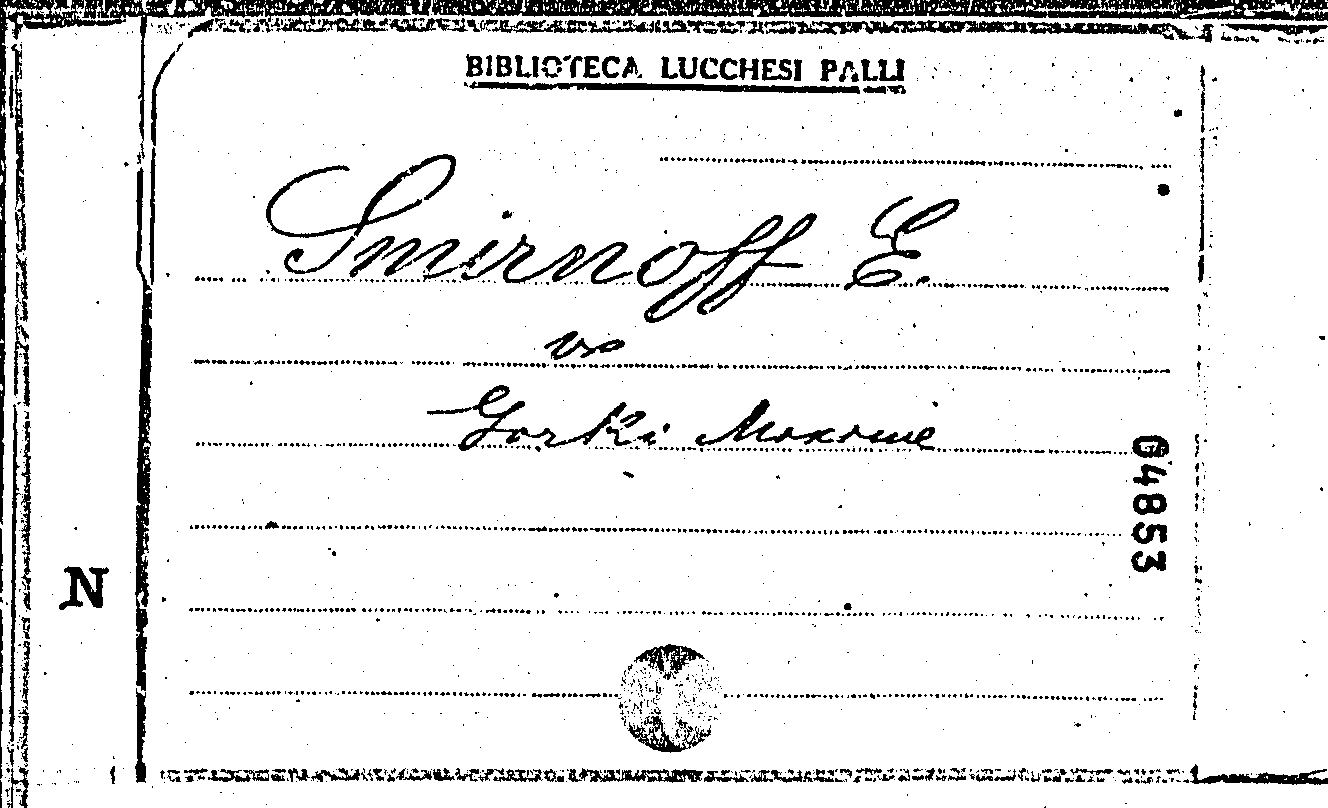 BIBLIOTECA LUCCHESI PALLI
Smirnoff E.
va
Gorki Maxime
04853
N